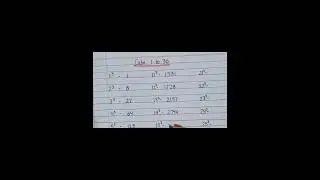 Cube 1 to 30
1³ - 1 11³ - 1331 21³ -
2³ - 8 12³ - 1728 22³ -
3³ - 27 13³ - 2197 23³ -
4³ - 64 14³ - 2744 24³ -
5³ - 15³ - 25³ -